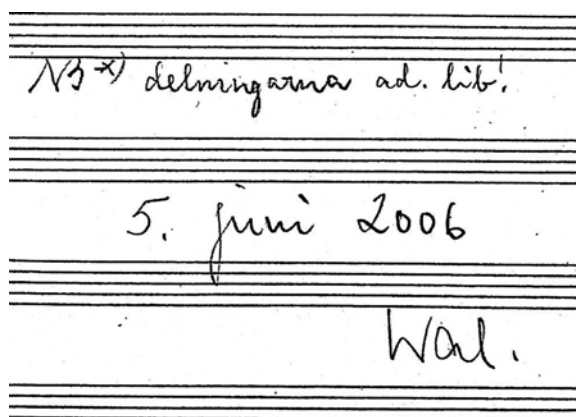 NB x) delningarna ad. lib!
5. juni 2006
Wal.